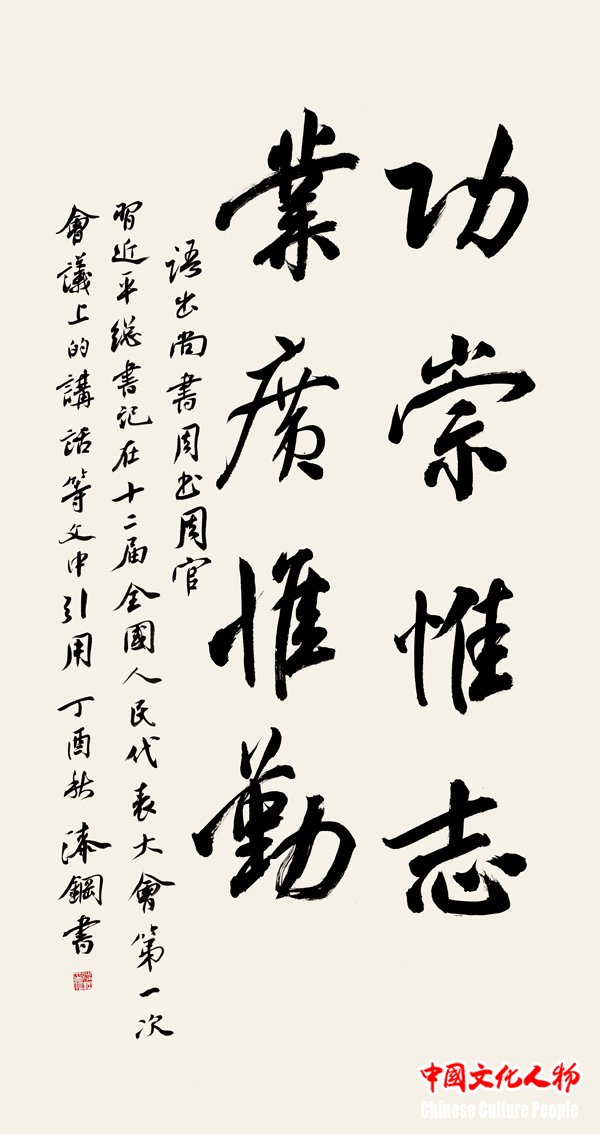 功崇惟志
業廣惟勤
语出尚書周书周官
習近平總書记在十二届全國人民代表大會第一次
會議上的講话等文中引用 丁酉秋 漆鋼書
中國文化人物
Chinese Culture People